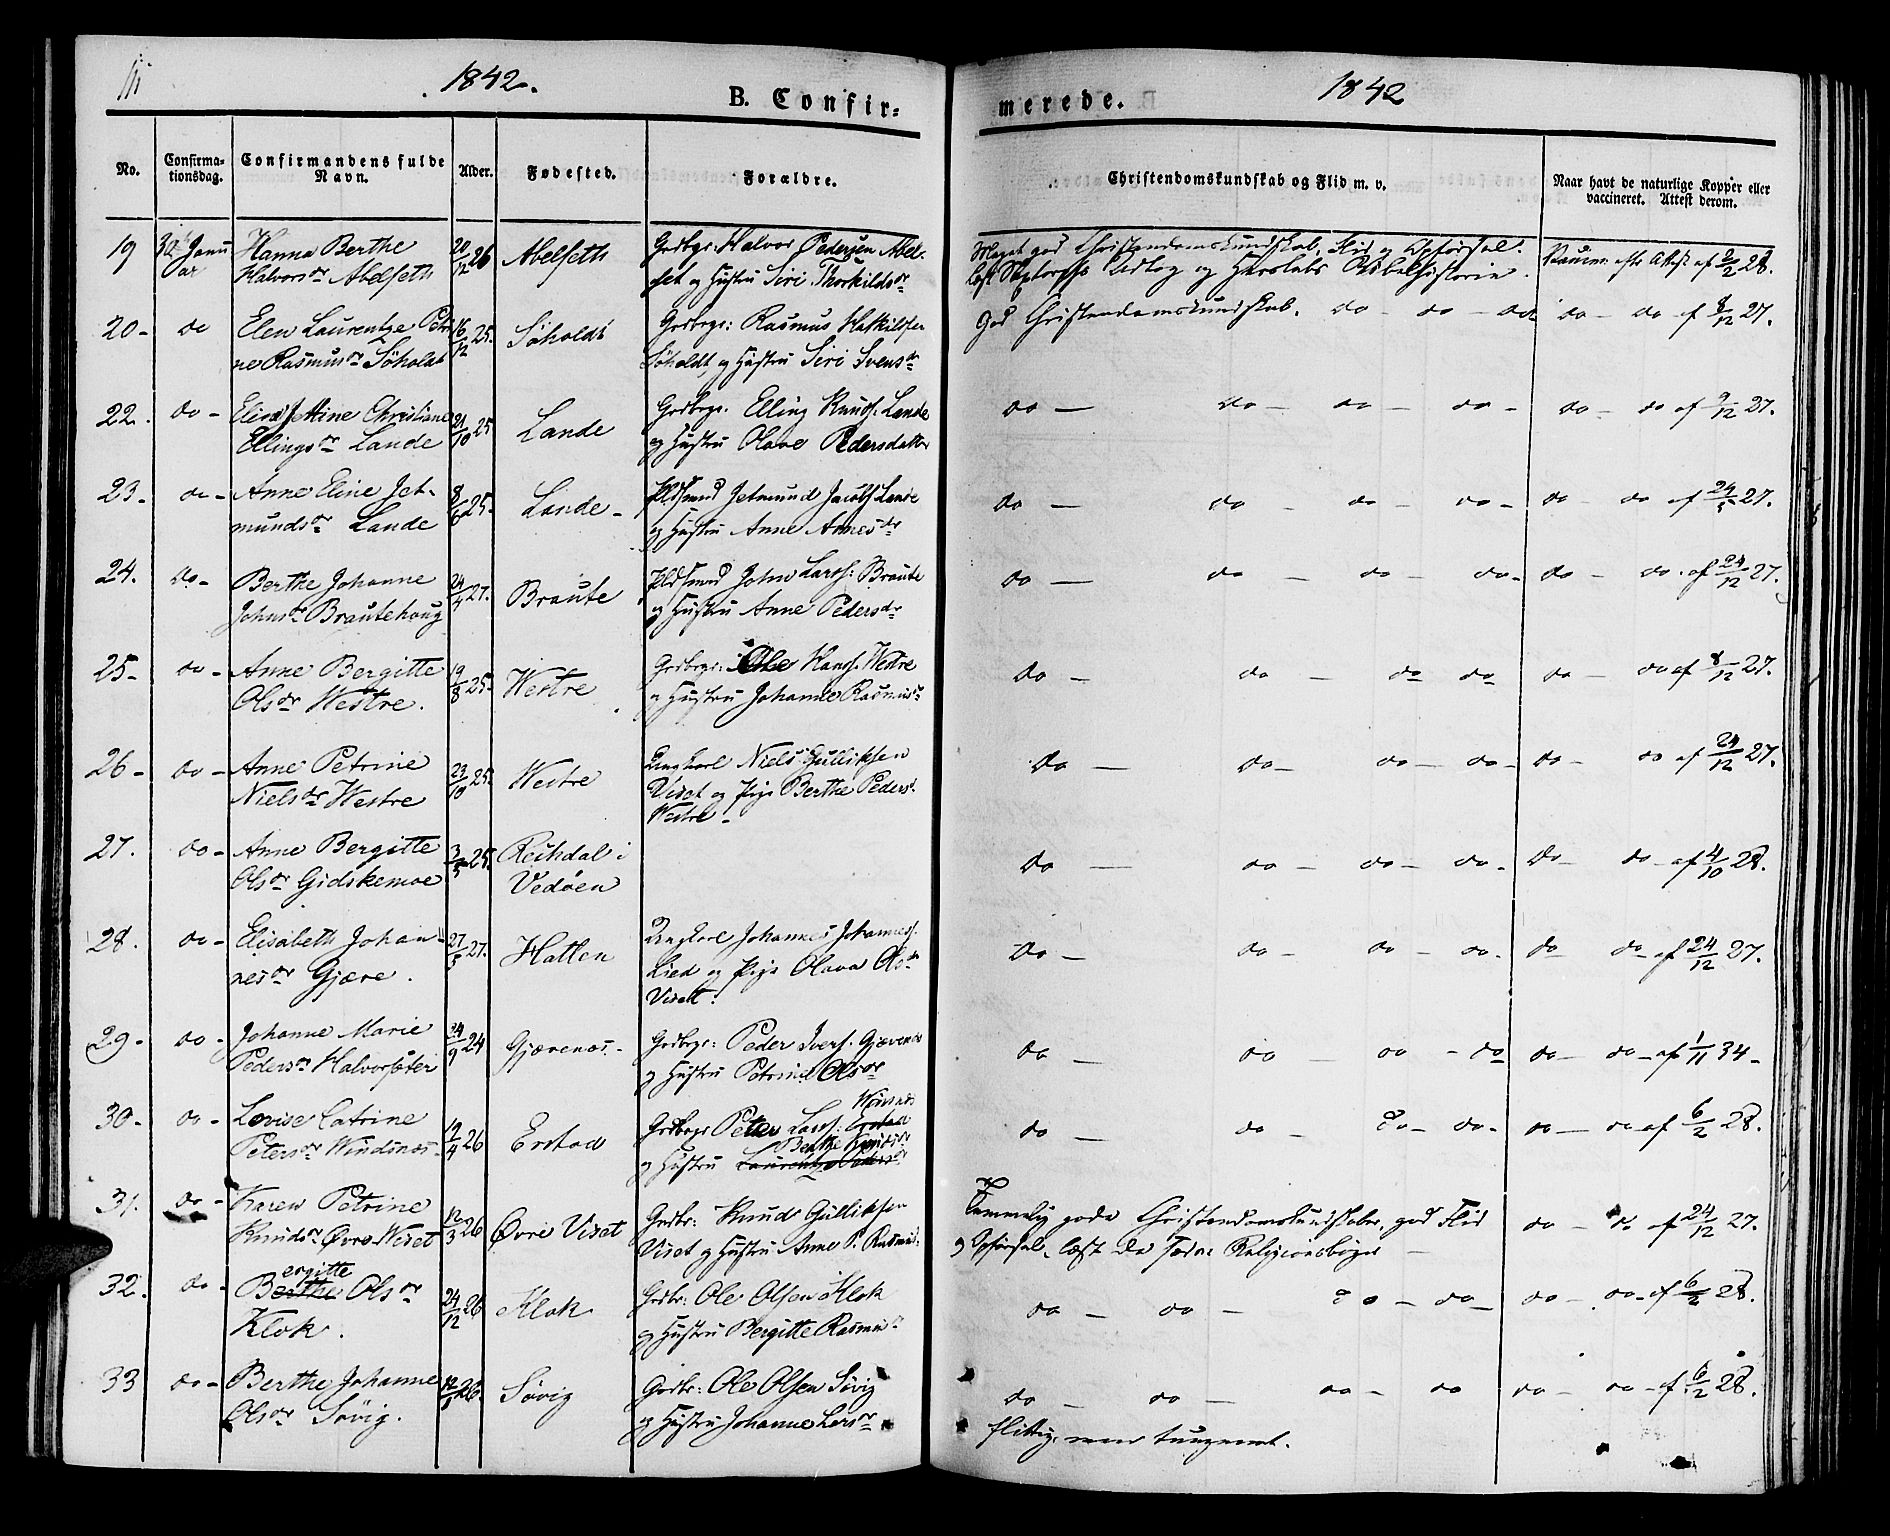 1842.
B. Confir=
No.
Confirma-
tionsdag.
Confirmandens fulde
Navn.
Alder.
Fødested.
Forældre.
19 30 Janu Hanna Berthe 20/12 26 Abelseth Grdbrgr: Halvor Pedersen Abel-
ar Halvorsdr Abelseth set og Hustru Siri Thorkildsdr
20- do Elen Laurentze Petri 16/12 25. Søholdt Grdbrgr: Rasmus
ne Rasmusdr Søholdt Søholdt og Hustru Siri Svensdr
22. do - Elise Jettine Christiane 21/10 25 Lande Grdbrgr. Elling Knuds. Lande
Ellingsdr Lande og Hustru Olave Pedersdatter
23- do - Anne Eline Jet- 25- Lande - Pldsmnd Jetmund Jacobs. Lande
mundsdr Lande og Hustru Anne
24. do - Berthe Johanne 24/4 27. Braute Pldsmnd John Larss: Braute
Johnsdr Brautehoug og Hustru Anne Pedersdr
25- do - Anne Bergitte 19/8 25- Westre Grdbrgr: Ole Hans. Westre
Olsdr Westre. og Hustru Johanne Rasmus
26- do - Anne Petrine 23/10 25- Westre Ungkarl Niels Gulliksen
Nielsdr Westre Viset og Pige Berthe Peders.
Westre -
27. do - Anne Bergitte 3/5 25. i
Olsdr Gidskemoe Vedøen
28. do - Elisabeth Johan- 27/5 27. Hatlen Ungkarl Johannes Johanness.
nesdr Gjære. Lied og Pige Olava Olsdr
Viset.
29- do - Johanne Marie 24/9 24 Gjærenes - Grdbrgr: Peder Ivers. Gjærenes
Pedersdr Halvorsæter og Hustru Petrine Olsdr
30- do - Lovise Catrine 19/4 26 Erstad Grdbrgr Peter Larss: Erstad Windsnæs
Petersdr Windsnæs - og Hustru Laurentze Pedersdr Berthe Knudsdr
31. do - Karen Petrine 12/3 26 Øvre Viset Grdbr: Knud Gulliksen
Knudsdr Øvre Wiset Viset og Hustru Anne P. Rasmus:
32. do - Berthe ergitte Olsdr 24/12 26 Klok Grdbr: Ole Olsen Klok
Klok. og Hustru Bergitte Rasmus
33 do - Berthe Johanne 26. Søvig Grdbr: Ole Olsen Søvig
Olsdr Søvig. og Hustru Johanne Larsdr
1842
merede.
Christendomskundskab og Flid m. v.
Naar havt de naturlige Kopper eller
vaccineret. Attest derom.
Meget god Christendomskundskab, Flid og Opførsel. Vaccin: eftr Attest af 2/2 28.
læst Udtog og Herslebs Bibelhistorie.
god Christendomskundskab. do - do - do do - do af 8/12 27.
do - do - do - do - do - do af 9/12 27.
do - do - do - do - do - do af 24/5 27.
do - do - do - do - do - do. af 24/12 27.
do - do - do do do - do af 8/12 27.
do - do - do - do - do - do af 24/12 27.
do - do - do - do - do - do - af 4/10 28.
do - do - do - do - do do - af 24/12 27.
do - do - do - do do - do - af 1/11 34 -
do - do - do - do - do - do af 6/2 28.
Temmelig gode Christendomskundskaber, god Flid do - do af 24/12 27.
og Opførsel, læst de Religionsbøger -
do - do - do - do - do - do - af 6/2 28.
do - do - do - do do - do - af 6/2 28.
flittig, men tungnemt.